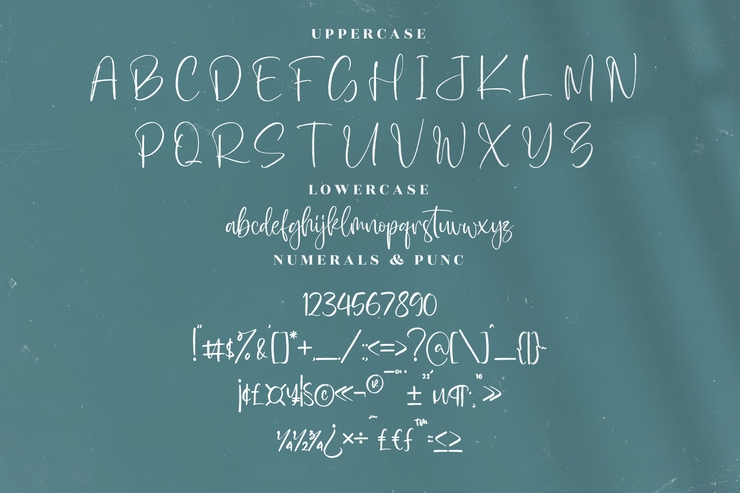 UPPERCASE
ABCDEFGHIJKLMN
PQRSTUVWXYZ
LOWERCASE
abcdefghijklmnopqrstuvwxyz
NUMERALS & PUNC
1234567890
!"#$%&'()*+,_./:;<=>?@[\]^_{|}~
¡¢£¤¥¦§©«¬®¯°±²³´µ¶·¸¹º»
¼½¾¿×÷ˆ˜₤€ƒ™≈≤≥